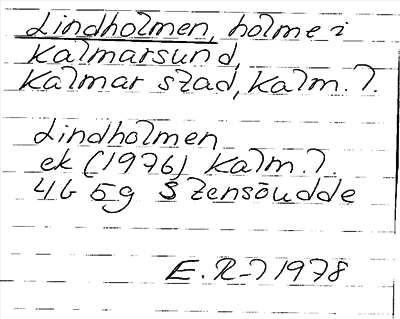 Lindholmen, holme i
Kalmarsund,
Kalmar stad, Kalm. l.
Lindholmen
ek (1976) Kalm. l.
4G 5g Stensöudde
E. R-l 1978